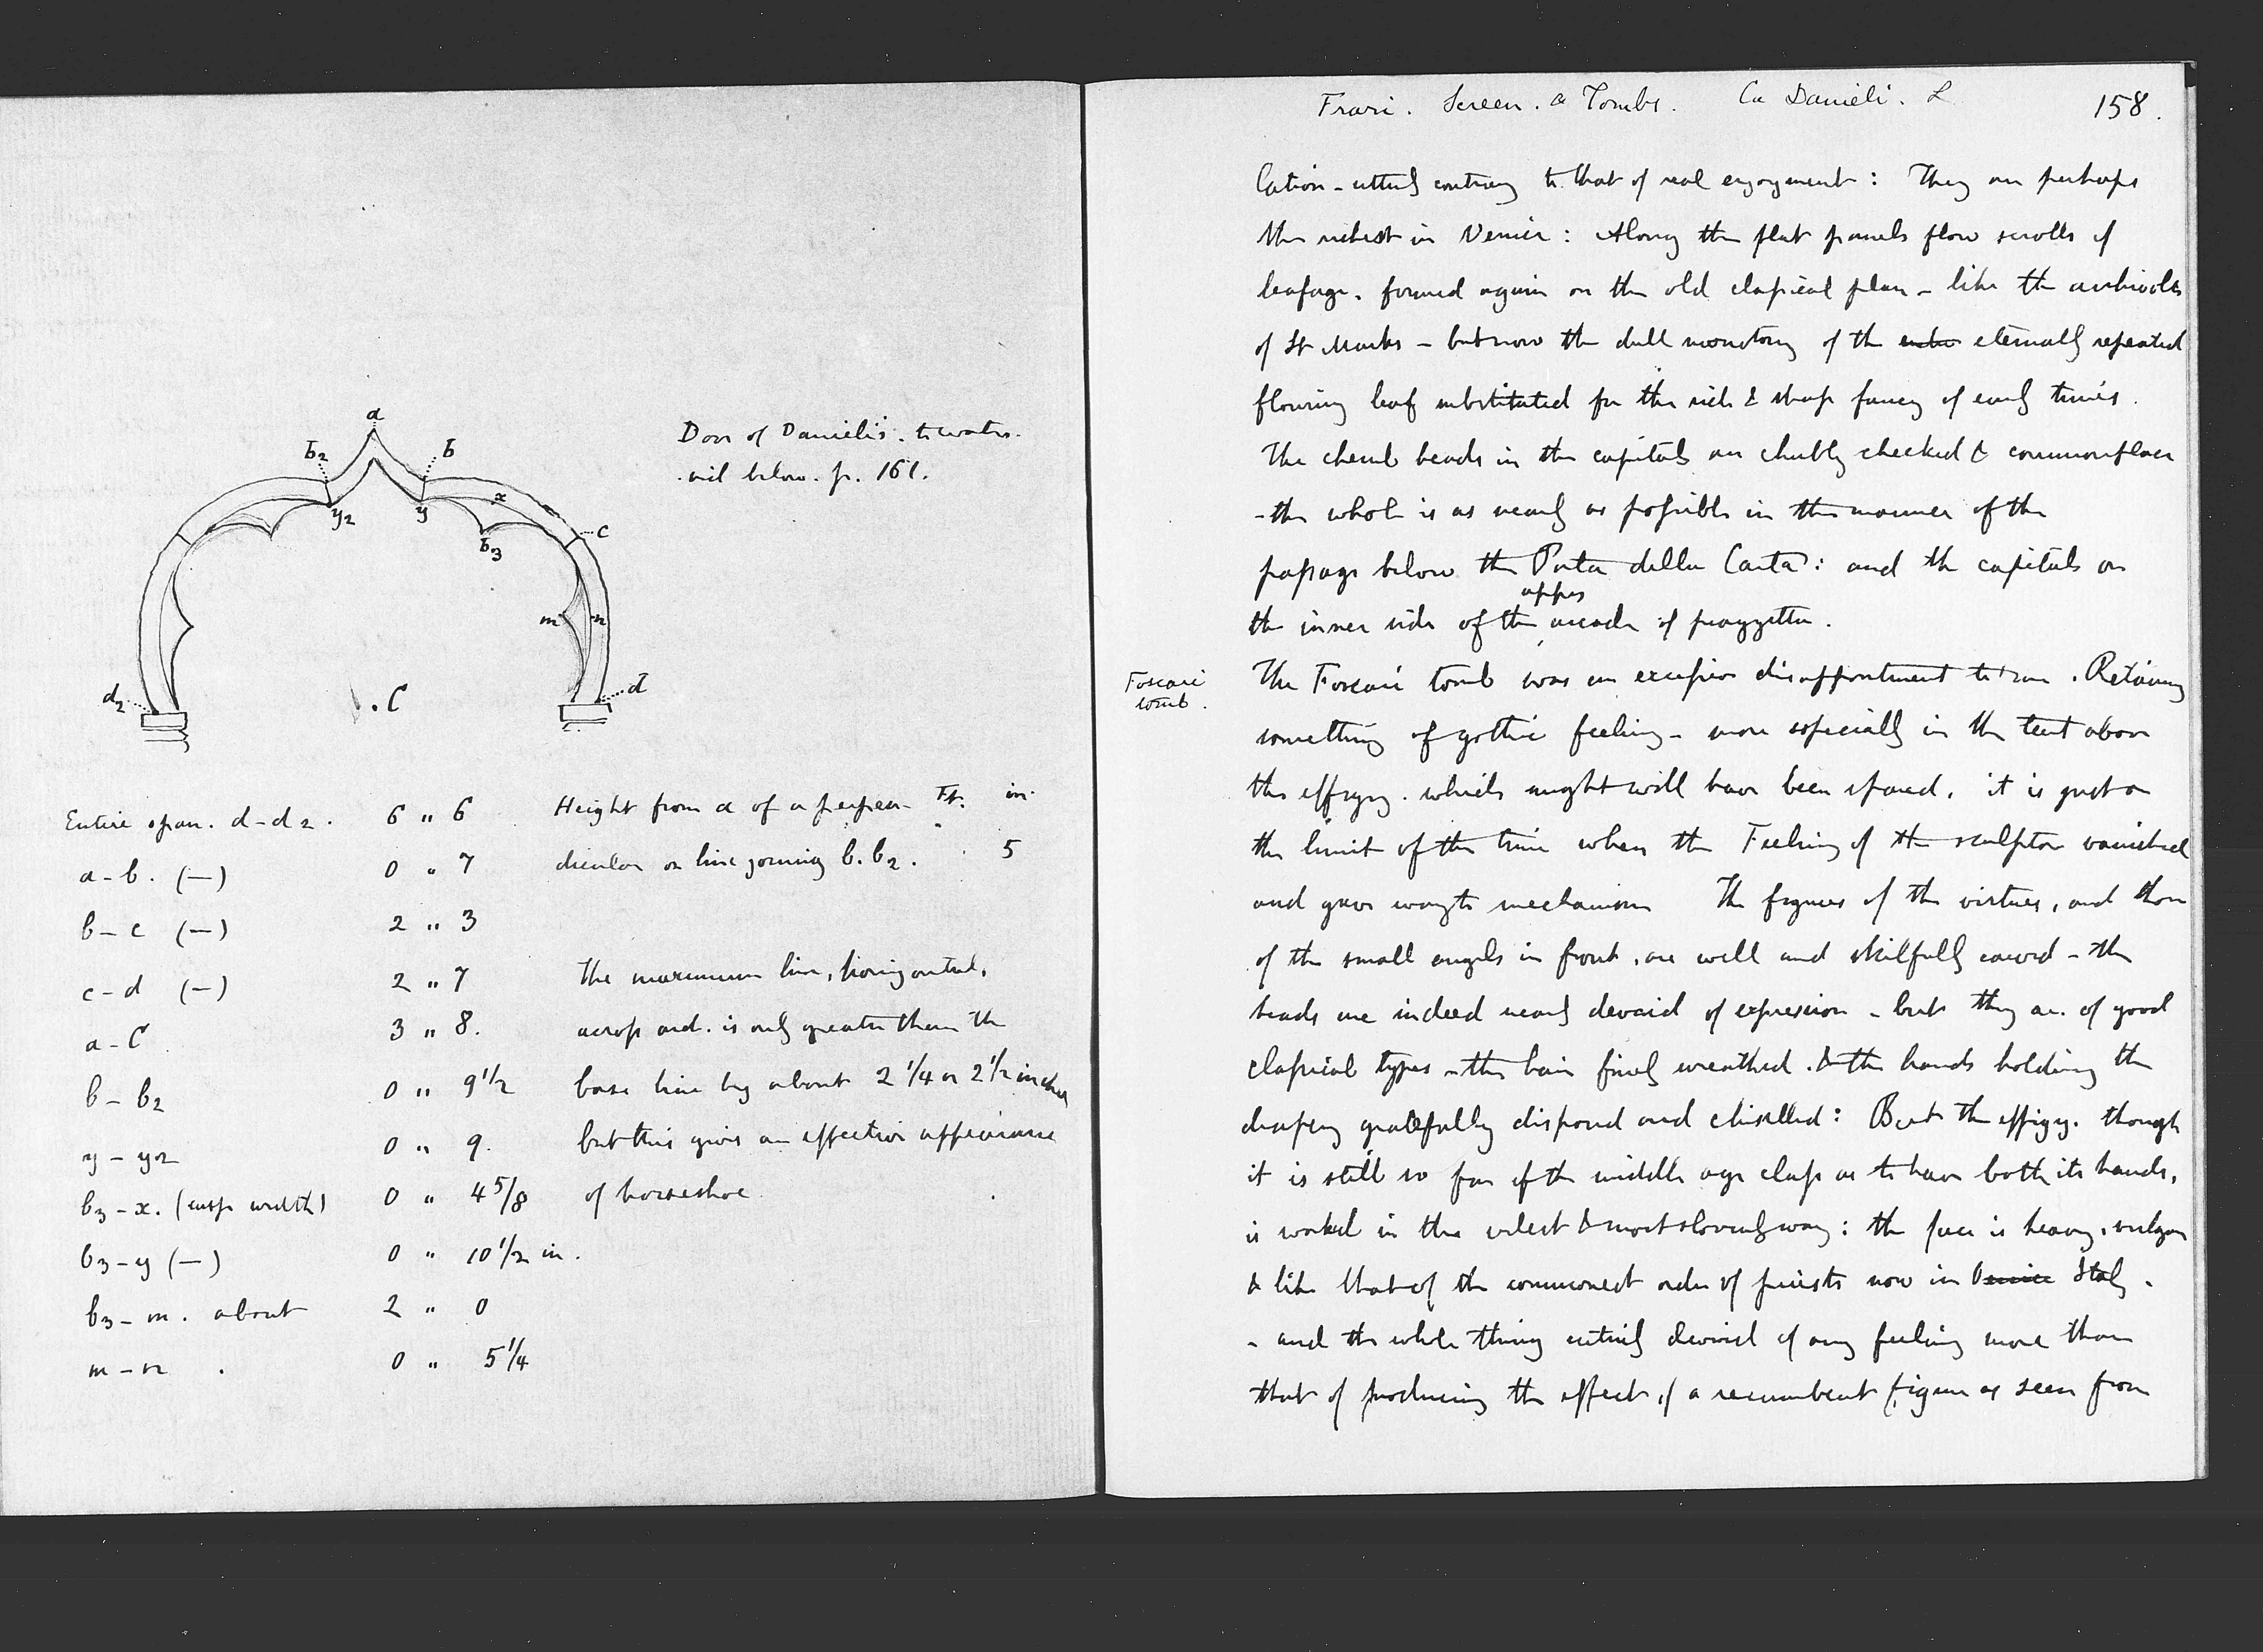 a
b2
b
x
y2
y
c
b3
m
n
d2
d
. C
Door of Danielis. to water.
vid below. p. 161.
Entire span. d-d2. 6 " 6
a-b. (—) 0 " 7
b-c (—) 2 " 3
c-d (—) 2 " 7
a-C 3 " 8.
b-b2 0 " 9 1/2
y-y2 0 " 9.
b3-x. (cusp width) 0 " 4 5/8
b3-y (—) 0 " 10 1/2 in.
b3-m. about 2 " 0
m-n . 0 " 5 1/4
Height from a of a perpen- Ft. in.
dicular on line joining b. b2. 5
The maximum line, horizontal,
across arch. is only greater than the
base line by about 2 1/4 or 2 1/2 inches
but this gives an effective appearance
of horseshoe.
Frari. Screen. & Tombs. Ca Danieli. L 158.
cation - utterly contrary to that of real enjoyment: They are perhaps
the richest in Venice: Along the flat panels flow scrolls of
leafage. formed again on the old classical plan - like the archivolts
of St Marks - but now the dull monotony of the eternally repeated
flowing leaf substituted for the rich & sharp fancy of early times.
The cherub heads in the capitals are chubby cheeked & commonplace
- the whole is as nearly as possible in the manner of the
passage below the Porta della Carta: and the capitals on
the inner side of the upper arcade of piazzetta.
Foscari
tomb.
The Foscari tomb was an excessive disappointment to me. Retaining
something of gothic feeling - more especially in the tent above
the effigy. which might well have been spared, it is just on
the limit of the time when the Feeling of the sculptor vanished
and gave way to mechanism The figures of the virtues, and those
of the small angels in front, are well and skilfully carved - the
heads are indeed nearly devoid of expression - but they are of good
classical types - the hair finely wreathed. & the hands holding the
drapery gracefully disposed and chiselled: But the effigy. though
it is still so far of the middle age class as to have both its hands,
is worked in the vilest & most slovenly way: the face is heavy, vulgar
& like that of the commonest order of priests now in Venice Italy.
- and the whole thing entirely devoid of any feeling more than
that of producing the effect of a recumbent figure as seen from